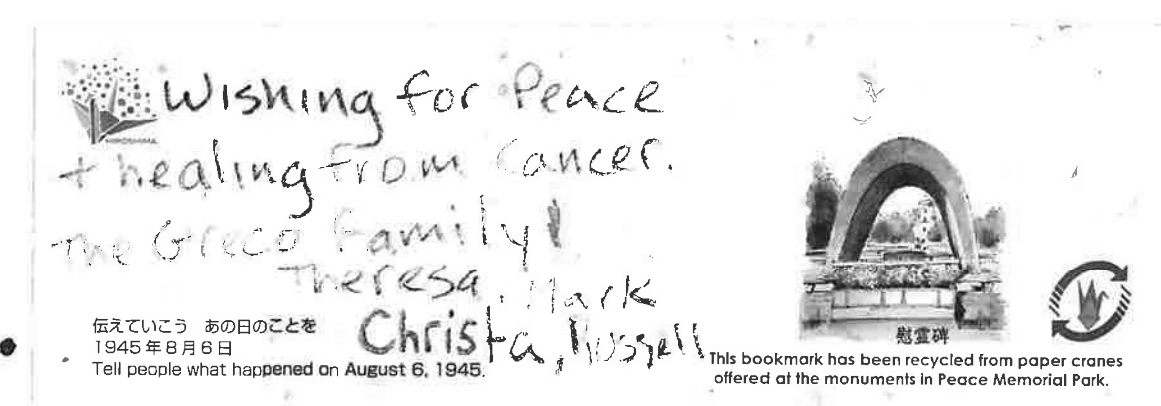 HIROSHIMA
Wishing for Peace
+ healing from Cancer.
The Greco Family!
Theresa, Mark
Christa, Russell
伝えていこう あの日のことを
1945年8月6日
Tell people what happened on August 6, 1945.
慰霊碑
This bookmark has been recycled from paper cranes
offered at the monuments in Peace Memorial Park.